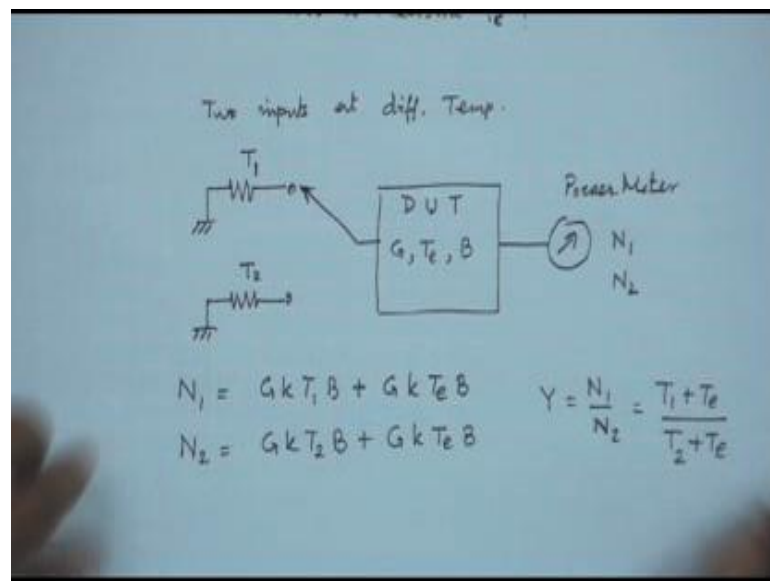 Two inputs at diff. Temp.
T₁
D U T
G, Te, B
Power Meter
N₁
N₂
T₂
N₁ = GkT₁B + GkTeB
N₂ = GkT₂B + GkTeB
Y = N₁/N₂ = (T₁+Te)/(T₂+Te)